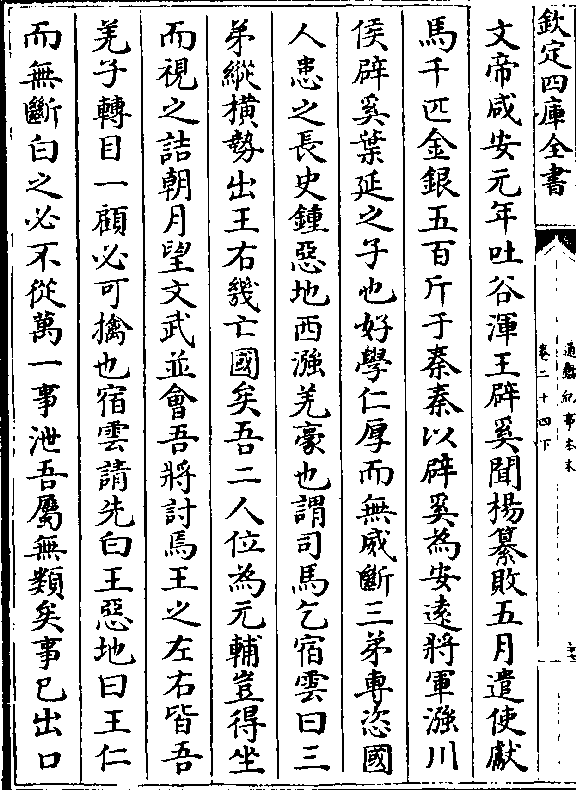 欽定四庫全書
通鑑紀事本末
卷二十四下
文帝咸安元年吐谷渾王辟奚聞楊纂敗五月遣使獻
馬千匹金銀五百斤于秦秦以辟奚為安逺將軍漒川
侯辟奚葉延之子也好學仁厚而無威斷三弟專恣國
人患之長史鍾惡地西漒羌豪也謂司馬乞宿雲曰三
弟縱横勢出王右幾亡國矣吾二人位為元輔豈得坐
而視之詰朝月望文武並會吾將討焉王之左右皆吾
羌子轉目一顧必可擒也宿雲請先白王惡地曰王仁
而無斷白之必不從萬一事泄吾屬無類矣事已出口